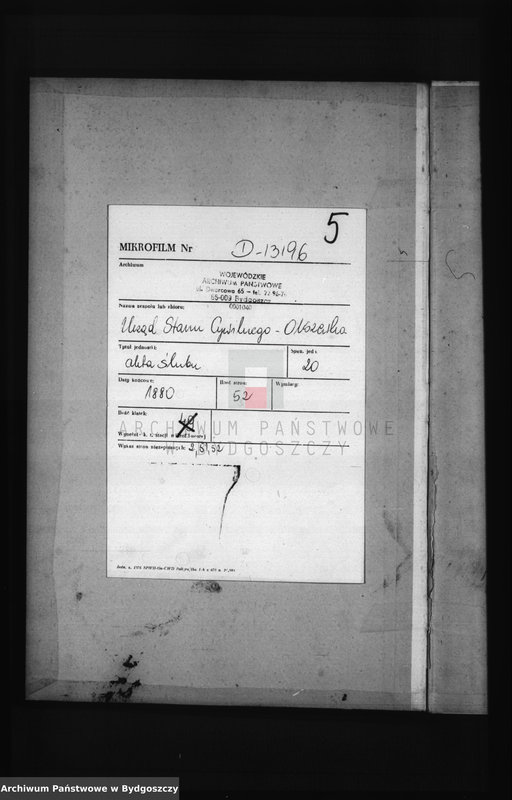 5
MIKROFILM Nr D-13196
Archiwum
WOJEWÓDZKIE
ARCHIWUM PAŃSTWOWE
ul. Dworcowa 65 — tel.
85-009 Bydgoszcz
0001040
Nazwa zespołu lub zbioru:
Urząd Stanu Cywilnego -
Tytuł jednostki: Sygn. jedn.
akta ślubu 20
Daty końcowe: Ilość stron: Wymiary:
1880 52
Ilość klatek: 49
Wykaz stron niezapisanych: 2, 51, 52
ARCHIWUM PAŃSTWOWE
W BYDGOSZCZY
Archiwum Państwowe w Bydgoszczy